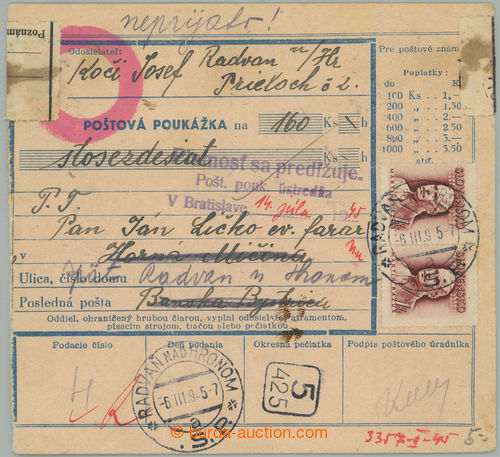 neprijato!
Poznám
Odosielateľ:
Pre poštové znám
Kočí Josef Radvan n/Hr
Prieloch č 2.
Poplatky:
do Ks
100 Ks 1,—
200 „ 1.50
400 „ 2.—
600 „ 2.50
800 „ 3.—
1000 „ 3.50
atď.
POŠTOVÁ POUKÁŽKA na 160 Ks h
stošesťdesiat
Platnosť sa predlžuje.
Pošt. pouk. ústredňa
V Bratislave 14. júla 1945
P. T.
Pan Ján Ličko ev. farár
v Horná Mičiná
Ulica, číslo domu
späť Radvan n Hronom
Posledná pošta Banská Bystrica
Oddiel, ohraničený hrubou čiarou, vyplní odosielateľ atramentom,
písacím strojom, tlačou alebo pečiatkou.
RADVAŇ NAD HRONOM
-6.III.9-5-7
SLOVENSKO
SLOVENSKO
Podacie číslo
Deň podania
Okresná pečiatka
Podpis poštového úradníka
RADVAŇ NAD HRONOM
-6.III.9-5-7
5
425
5=
© burda-auction.com